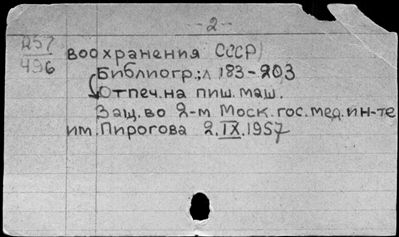 - 2 -
257
496
воохранения СССР)
Библиогр.; л 183-203
Отпеч. на пиш. маш.
Защ. во 2-м Моск. гос. мед. ин-те
им. Пирогова 2.IX.1957